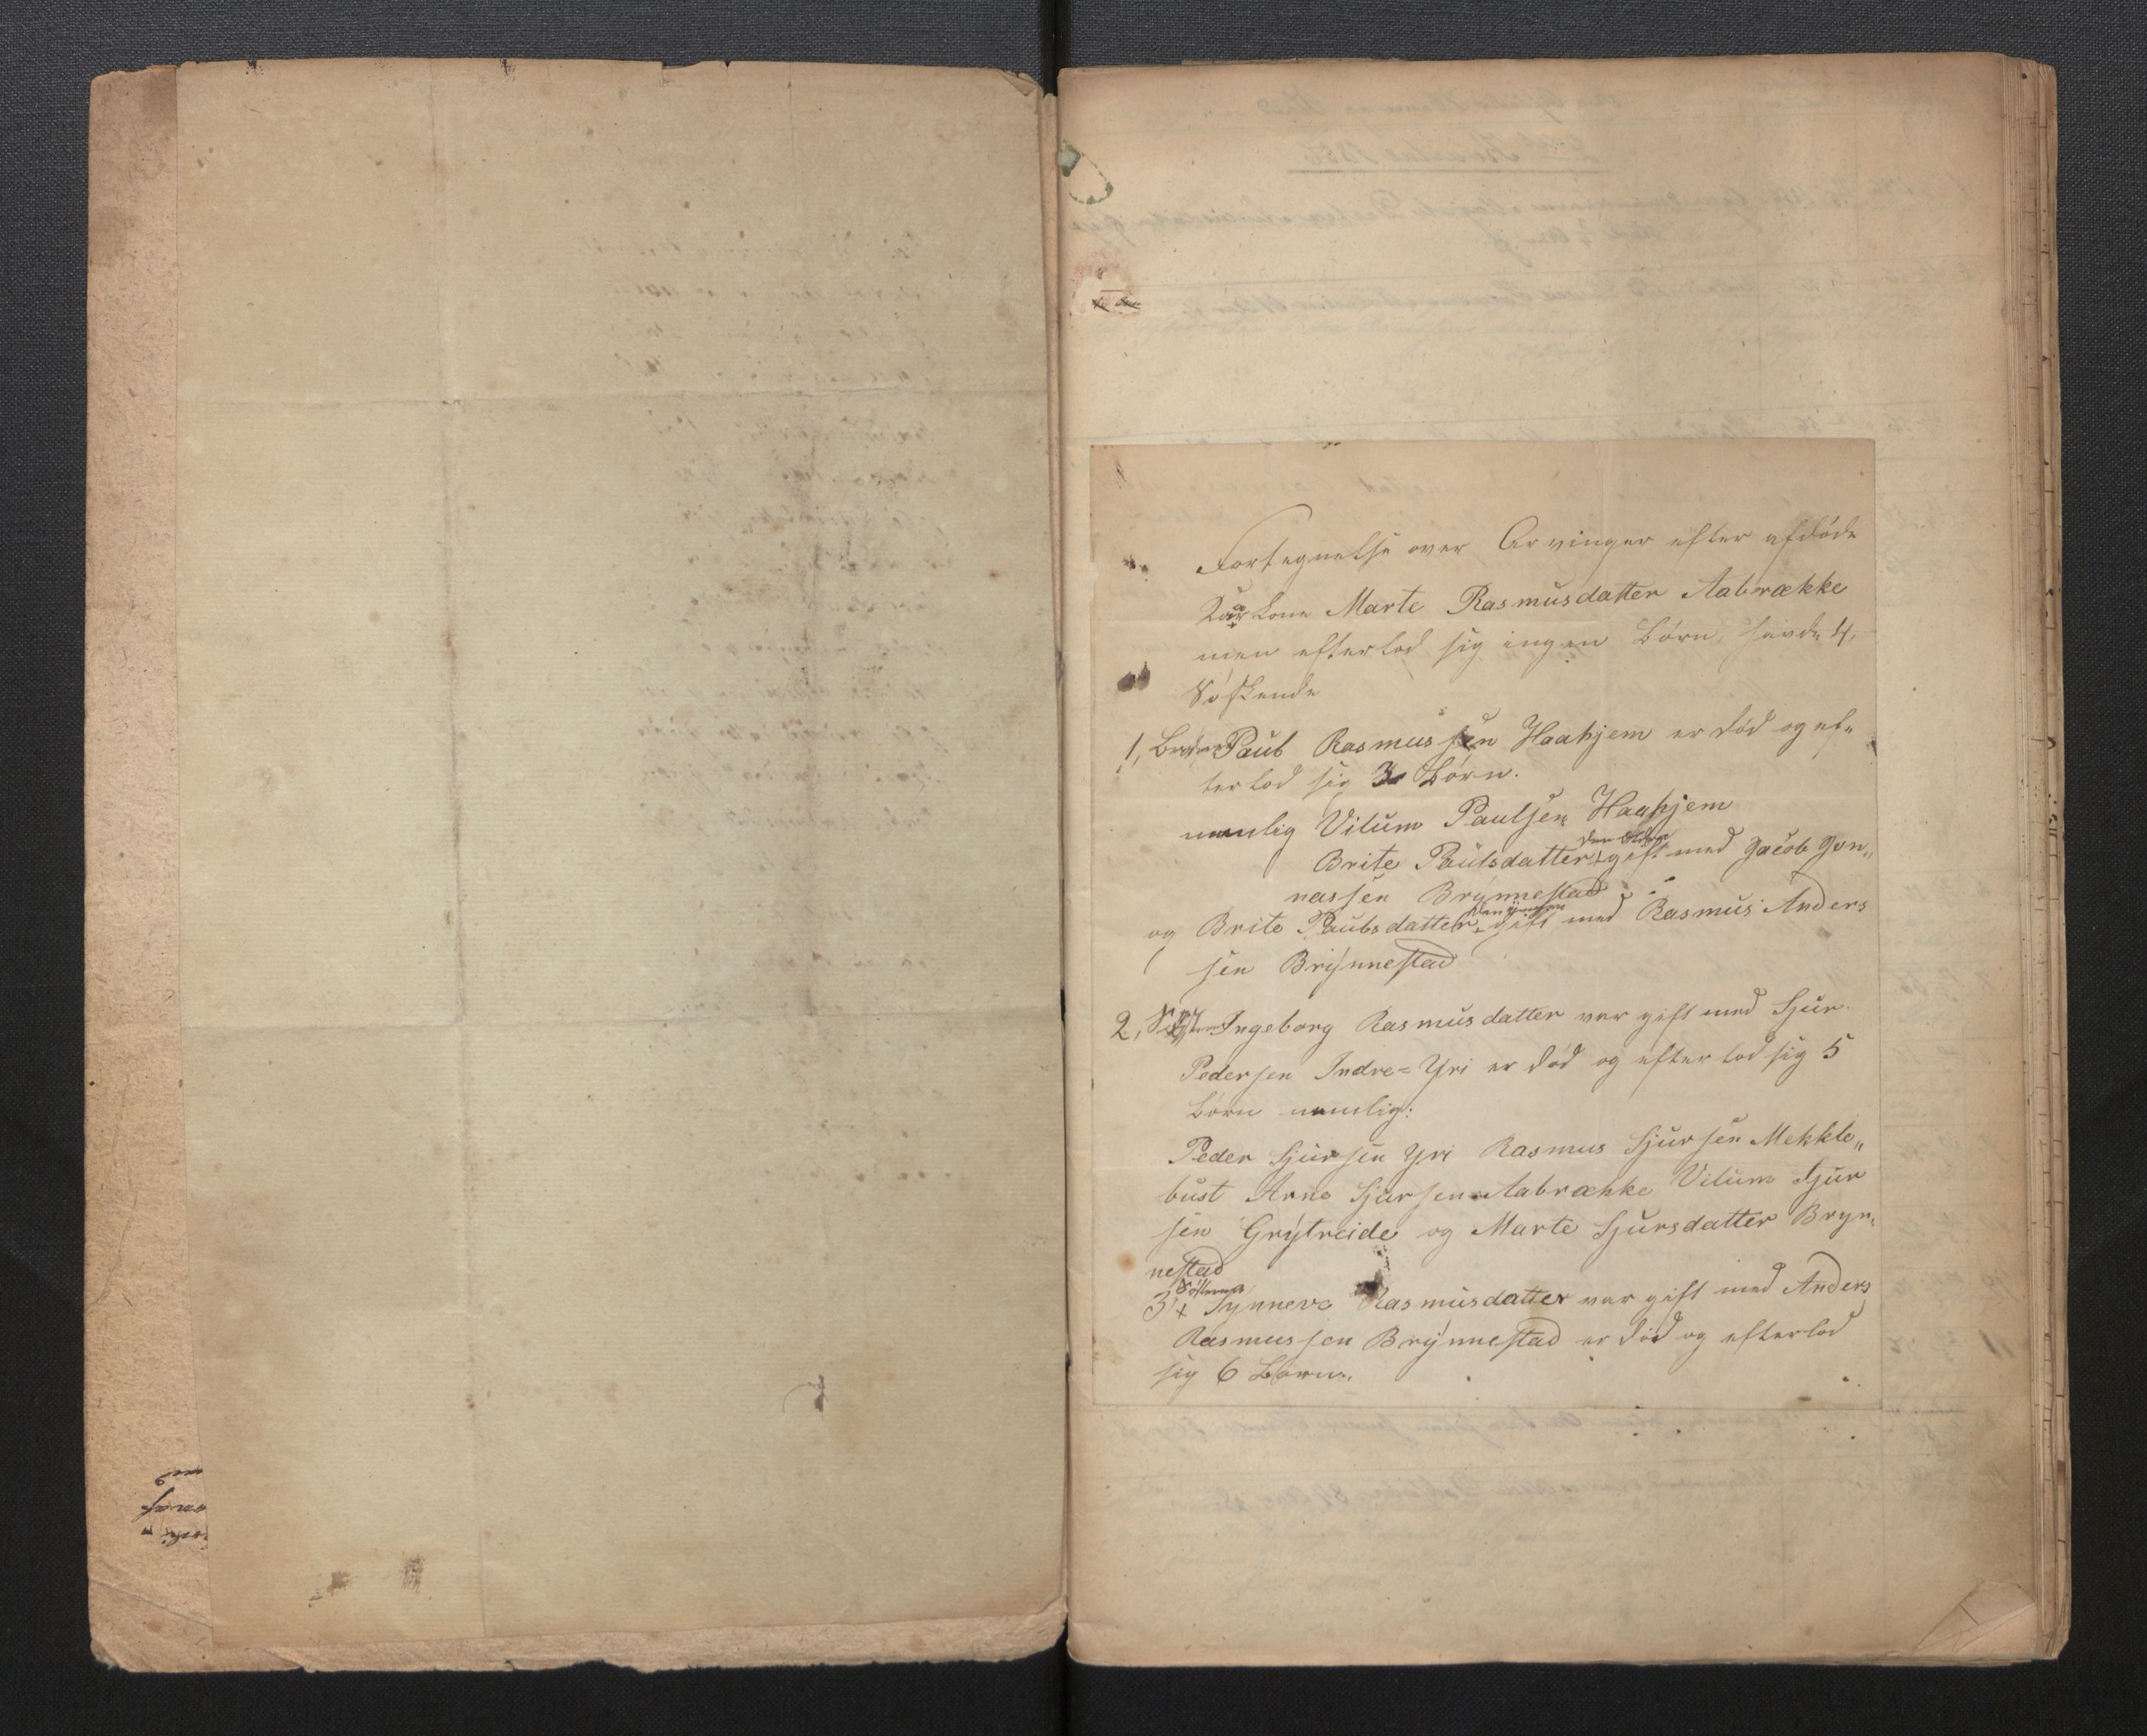 Fortegnelse over Arvinger efter afdøde
Kaarkone Marte Rasmusdatter Aabrække
men efterlod sig ingen Børn, havde 4,
Søskende
1, Broderen Paul Rasmussen Haahjem er død og ef„
terlod sig 3 Børn.
nemlig Vilum Paulsen Haahjem
den Ældre
Brite Paulsdatter + gift med Jacob Jon„
nassen Brynnestad
den yngre
og Brite Paulsdatter + gift med Rasmus Anders
sen Brynnestad
2, Søsteren Ingeborg Rasmusdatter var gift med Sjur
Pedersen Indre=Yri er død og efterlod sig 5
Børn nemlig:
Peder Sjursen Yri Rasmus Sjursen Mekkle„
bust Arne Sjursen Aabrække Vilum Sjur
sen Grytreide og Marte Sjursdatter Bryn„
nestad
Søsteren
3, + Synneve Rasmusdatter var gift med Anders
Rasmussen Brynnestad er død og efterlod
sig 6 Børn.